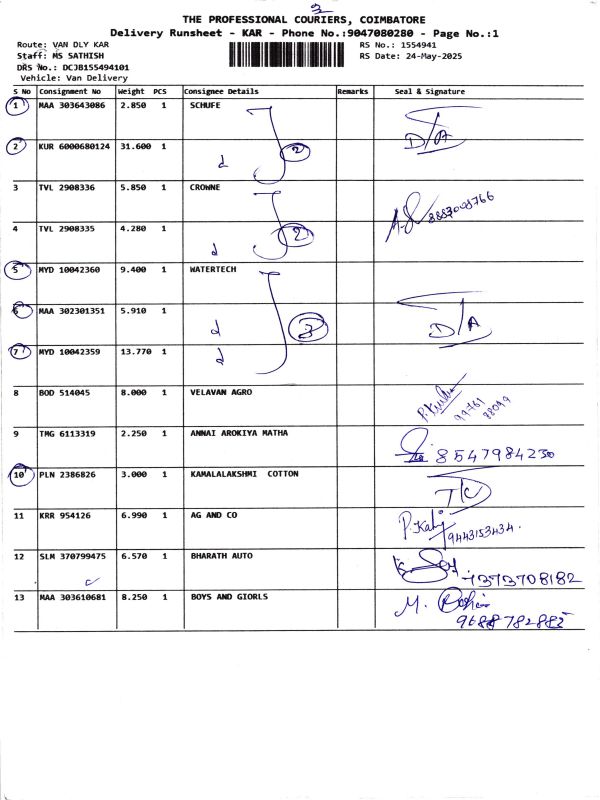 2
THE PROFESSIONAL COURIERS, COIMBATORE
Delivery Runsheet - KAR - Phone No.:9047080280 - Page No.:1
Route: VAN DLY KAR RS No.: 1554941
Staff: MS SATHISH RS Date: 24-May-2025
DRS No.: DCJB155494101
Vehicle: Van Delivery
S No Consignment No Weight PCS Consignee Details Remarks Seal & Signature
1 MAA 303643086 2.850 1 SCHUFE D/A
2 KUR 6000680124 31.600 1 d 2
3 TVL 2908336 5.850 1 CROWNE
4 TVL 2908335 4.280 1 d 2
5 MYD 10042360 9.400 1 WATERTECH
6 MAA 302301351 5.910 1 d 3 D/A
7 MYD 10042359 13.770 1 d
8 BOD 514045 8.000 1 VELAVAN AGRO
9 TMG 6113319 2.250 1 ANNAI AROKIYA MATHA 8547984230
10 PLN 2386826 3.000 1 KAMALALAKSHMI COTTON T/C
11 KRR 954126 6.990 1 AG AND CO P. Kaly 9443153434.
12 SLM 370799475 6.570 1 BHARATH AUTO
13 MAA 303610681 8.250 1 BOYS AND GIORLS M.
9688782882